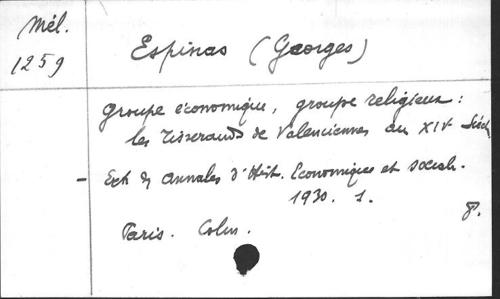 Mél.
1259
Espinas (Georges)
Groupe économique, groupe religieux :
les Tisserands de Valenciennes au XIVe Siècle
- Ext. des Annales d'Hist. Economique et sociale.
1930. 1.
8°.
Paris. Colin.